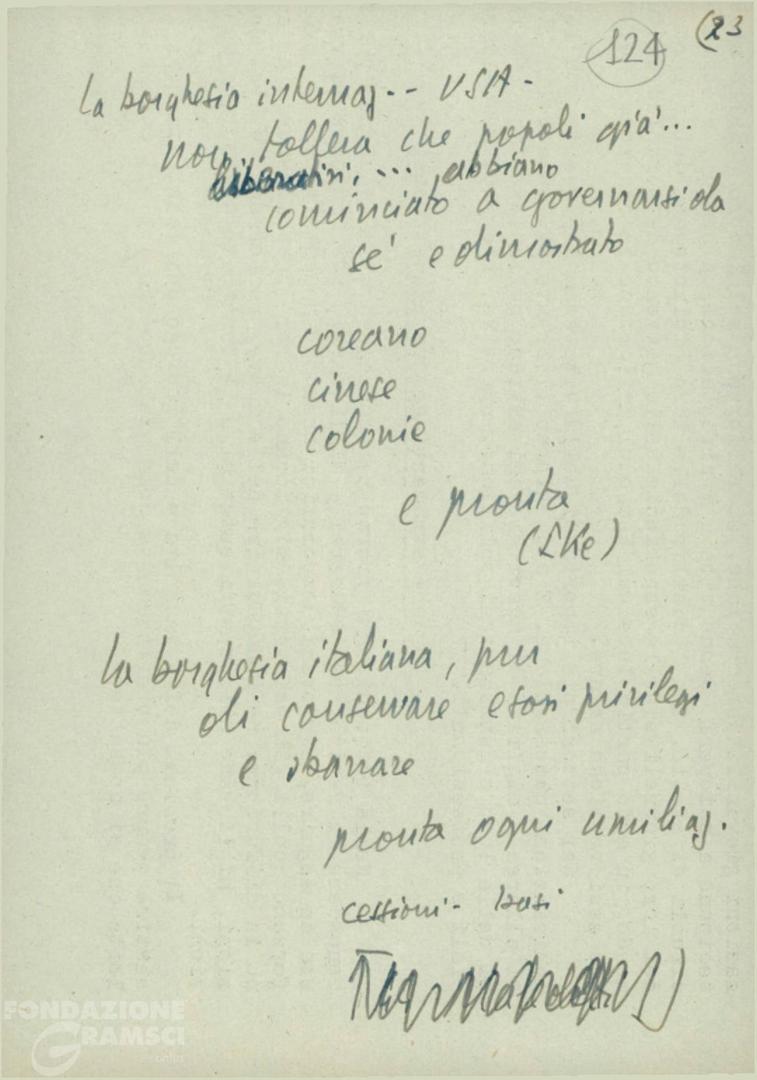 124
(23
la borghesia internaz-- USA-
non tollera che popoli già...
liberatisi, ... abbiano
cominciato a governarsi da
sé e dimostrato
coreano
cinese
colonie
e pronta
la borghesia italiana, pur
di conservare esosi privilegi
e sbarrare
pronta ogni umiliaz.
cessioni - basi
FONDAZIONE
GRAMSCI
onlus